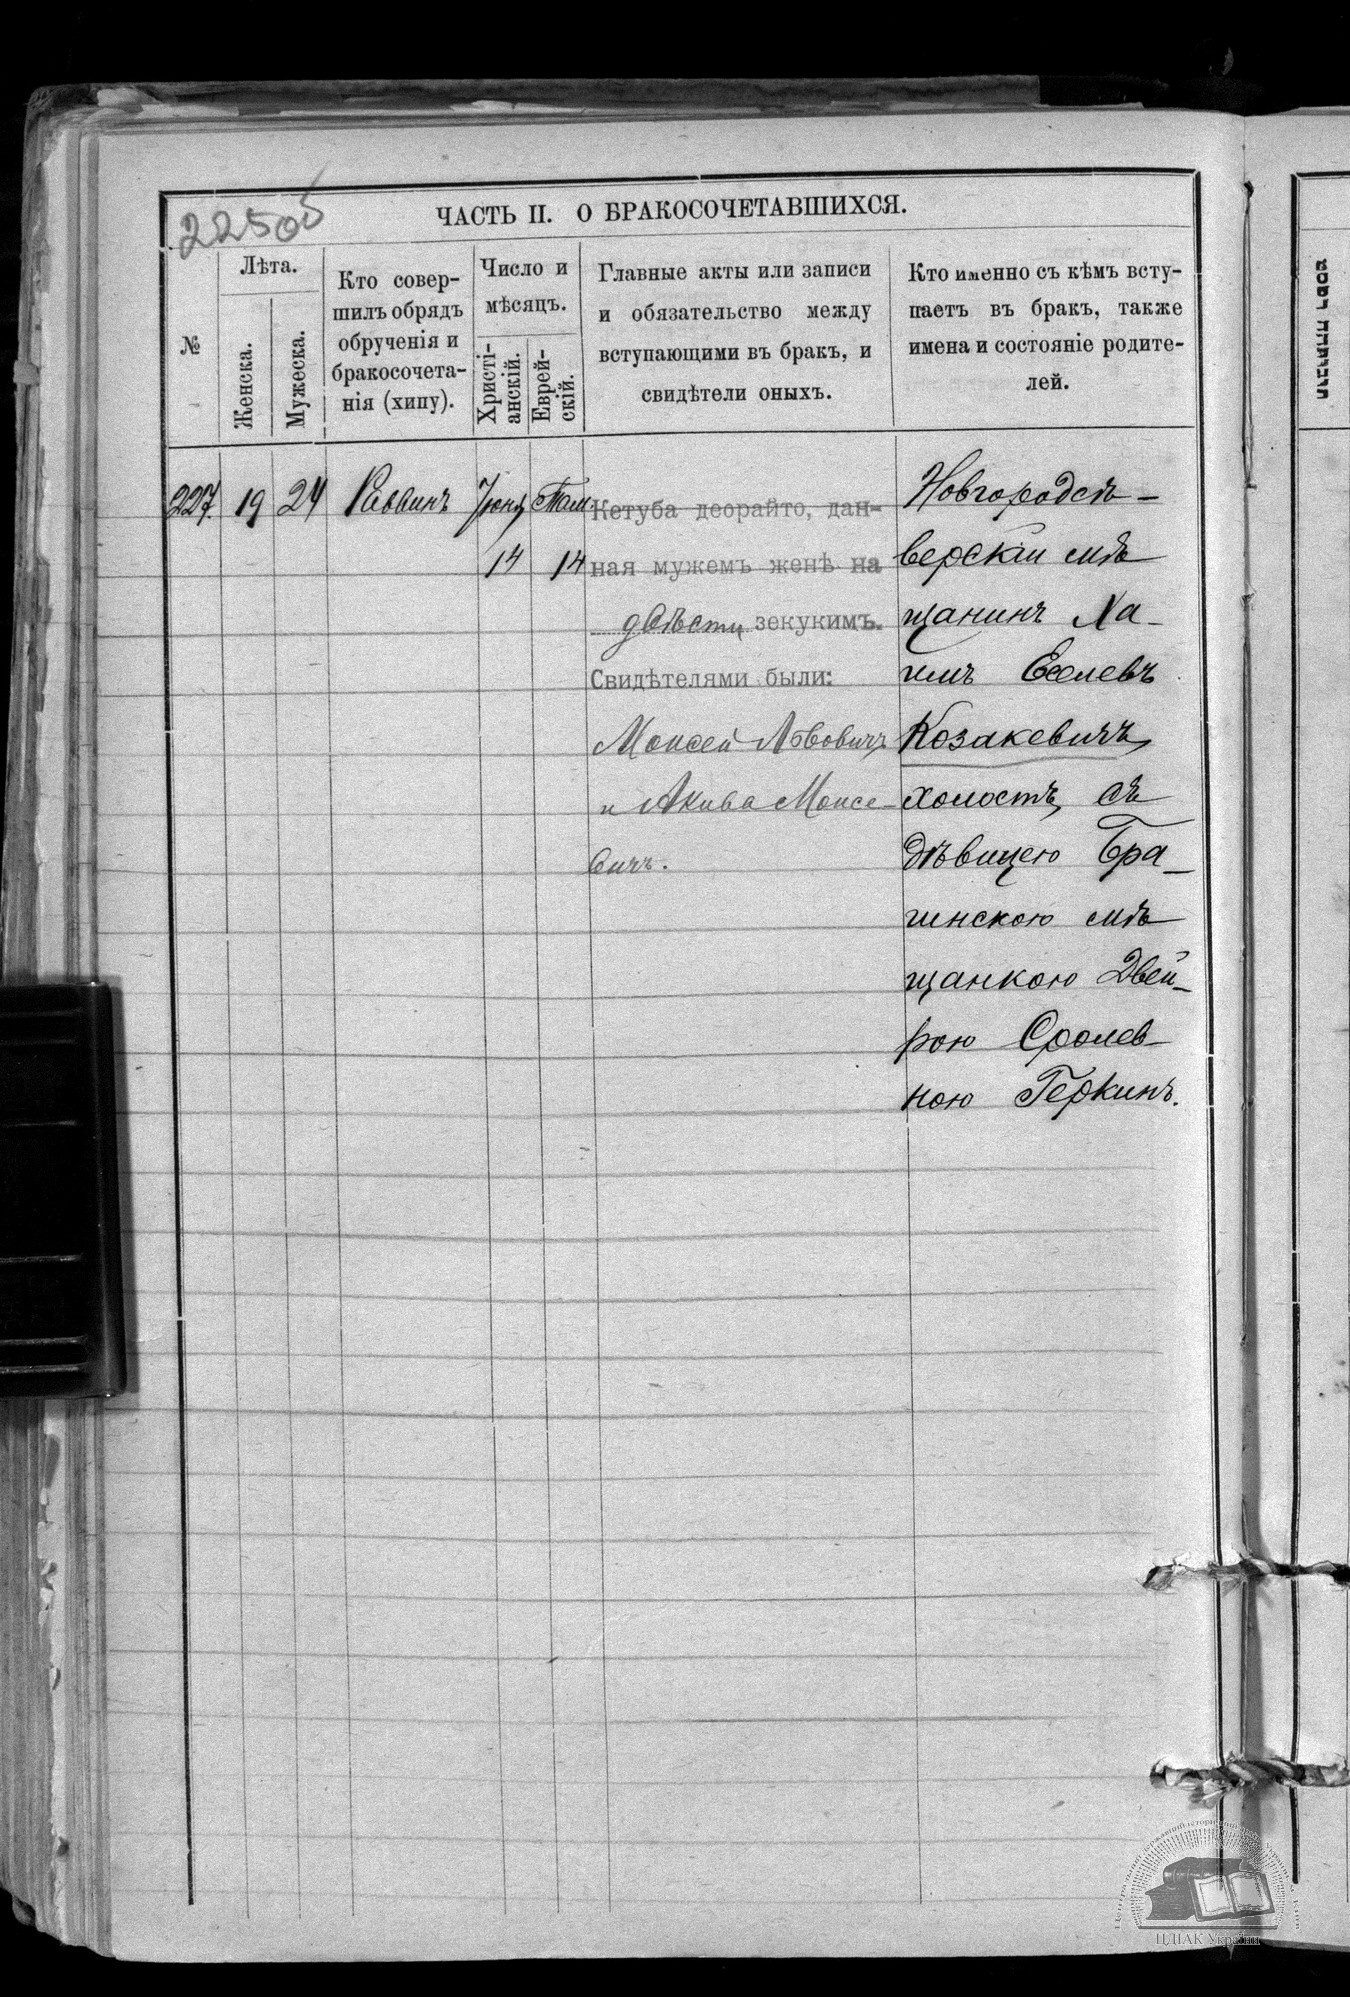 22505
ЧАСТЬ II. О БРАКОСОЧЕТАВШИХСЯ.
№
Лѣта.
Женска.
Мужеска.
Кто совер-
шилъ обрядъ
обрученія и
бракосочета-
нія (хипу).
Число и
мѣсяцъ.
Христі-
анскій.
Еврей-
скій.
Главные акты или записи
и обязательство между
вступающими въ бракъ, и
свидѣтели оныхъ.
Кто именно съ кѣмъ всту-
паетъ въ бракъ, также
имена и состояніе родите-
лей.
227.
19
24
Раввинъ
Іюнь
14
Там.
14
Кетуба деорайто, дан-
ная мужемъ женѣ на
двѣсти зекукимъ.
Свидѣтелями были:
Моисей Львовичъ
и Акива Моисе-
вичъ.
Новгородсѣ-
верскій мѣ
щанинъ Ха-
имъ Еселевъ
Козакевичъ,
холостъ, съ
дѣвицею Бра-
гинскою мѣ
щанкою Двей-
рою Сролев-
ною Геркинъ.
ЦДІАК України